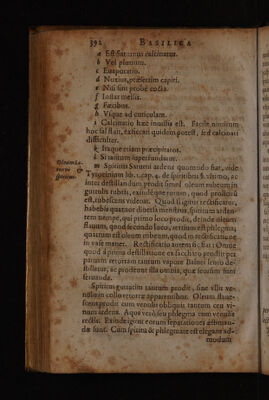 392 BASILICA
a Est Saturnus calcinatus.
b Vel plumum.
c Euaporatio.
d Noxius, præsertim capiti.
e Nisi sint probè cocta.
f Instar mellis.
g Fæcibus.
h Vsque ad cuticulam.
i Calcinatio hæc inutilis est. Facile nimirum
hoc sal statt, exsiccari quidem potest, sed calcinari
difficulter.
k Itaque etiam præcipitatur.
l Si tantum superfundatur.
m Spiritus Saturni ardens quomodo fiat, vide
Tyrocinium lib. 1. cap. 4. de spiritibus §. vltimo, ac
inter destillandum prodit simul oleum rubeum in
guttulis rubris, exinde quæ eorum, quod prolicui
est, rubescens videtur. Quod si igitur rectificatur,
habebis quatuor diuersa menstrua, spiritum ardentem
nempe, qui primo loco prodit, deinde oleum
flauum, quod secundo loco, tertium est phlegma,
quartum est oleum rubeum, quod in rectificatione
in vase manet. Rectificatio autem sic fiat: Omne
quod à prima destillatione ex sacchato prodiit per
paruam retortam tantum vapore Balnei lento destilletur,
sic prodeunt illa omnia, quæ seorsim sunt
seruanda.
Spiritus guttatim tantum prodit, sine vllis venulis
in collo retortæ apparentibus. Oleum flauescens
prodit cum venulis obliquis tantum ceu vinum
ardens. Aqua verò seu phlegma cum venulis
rectis. Exinde igitur eorum separationes æstimandæ
sunt. Cum spiritu & phlegmate est elegans ad-
moduin